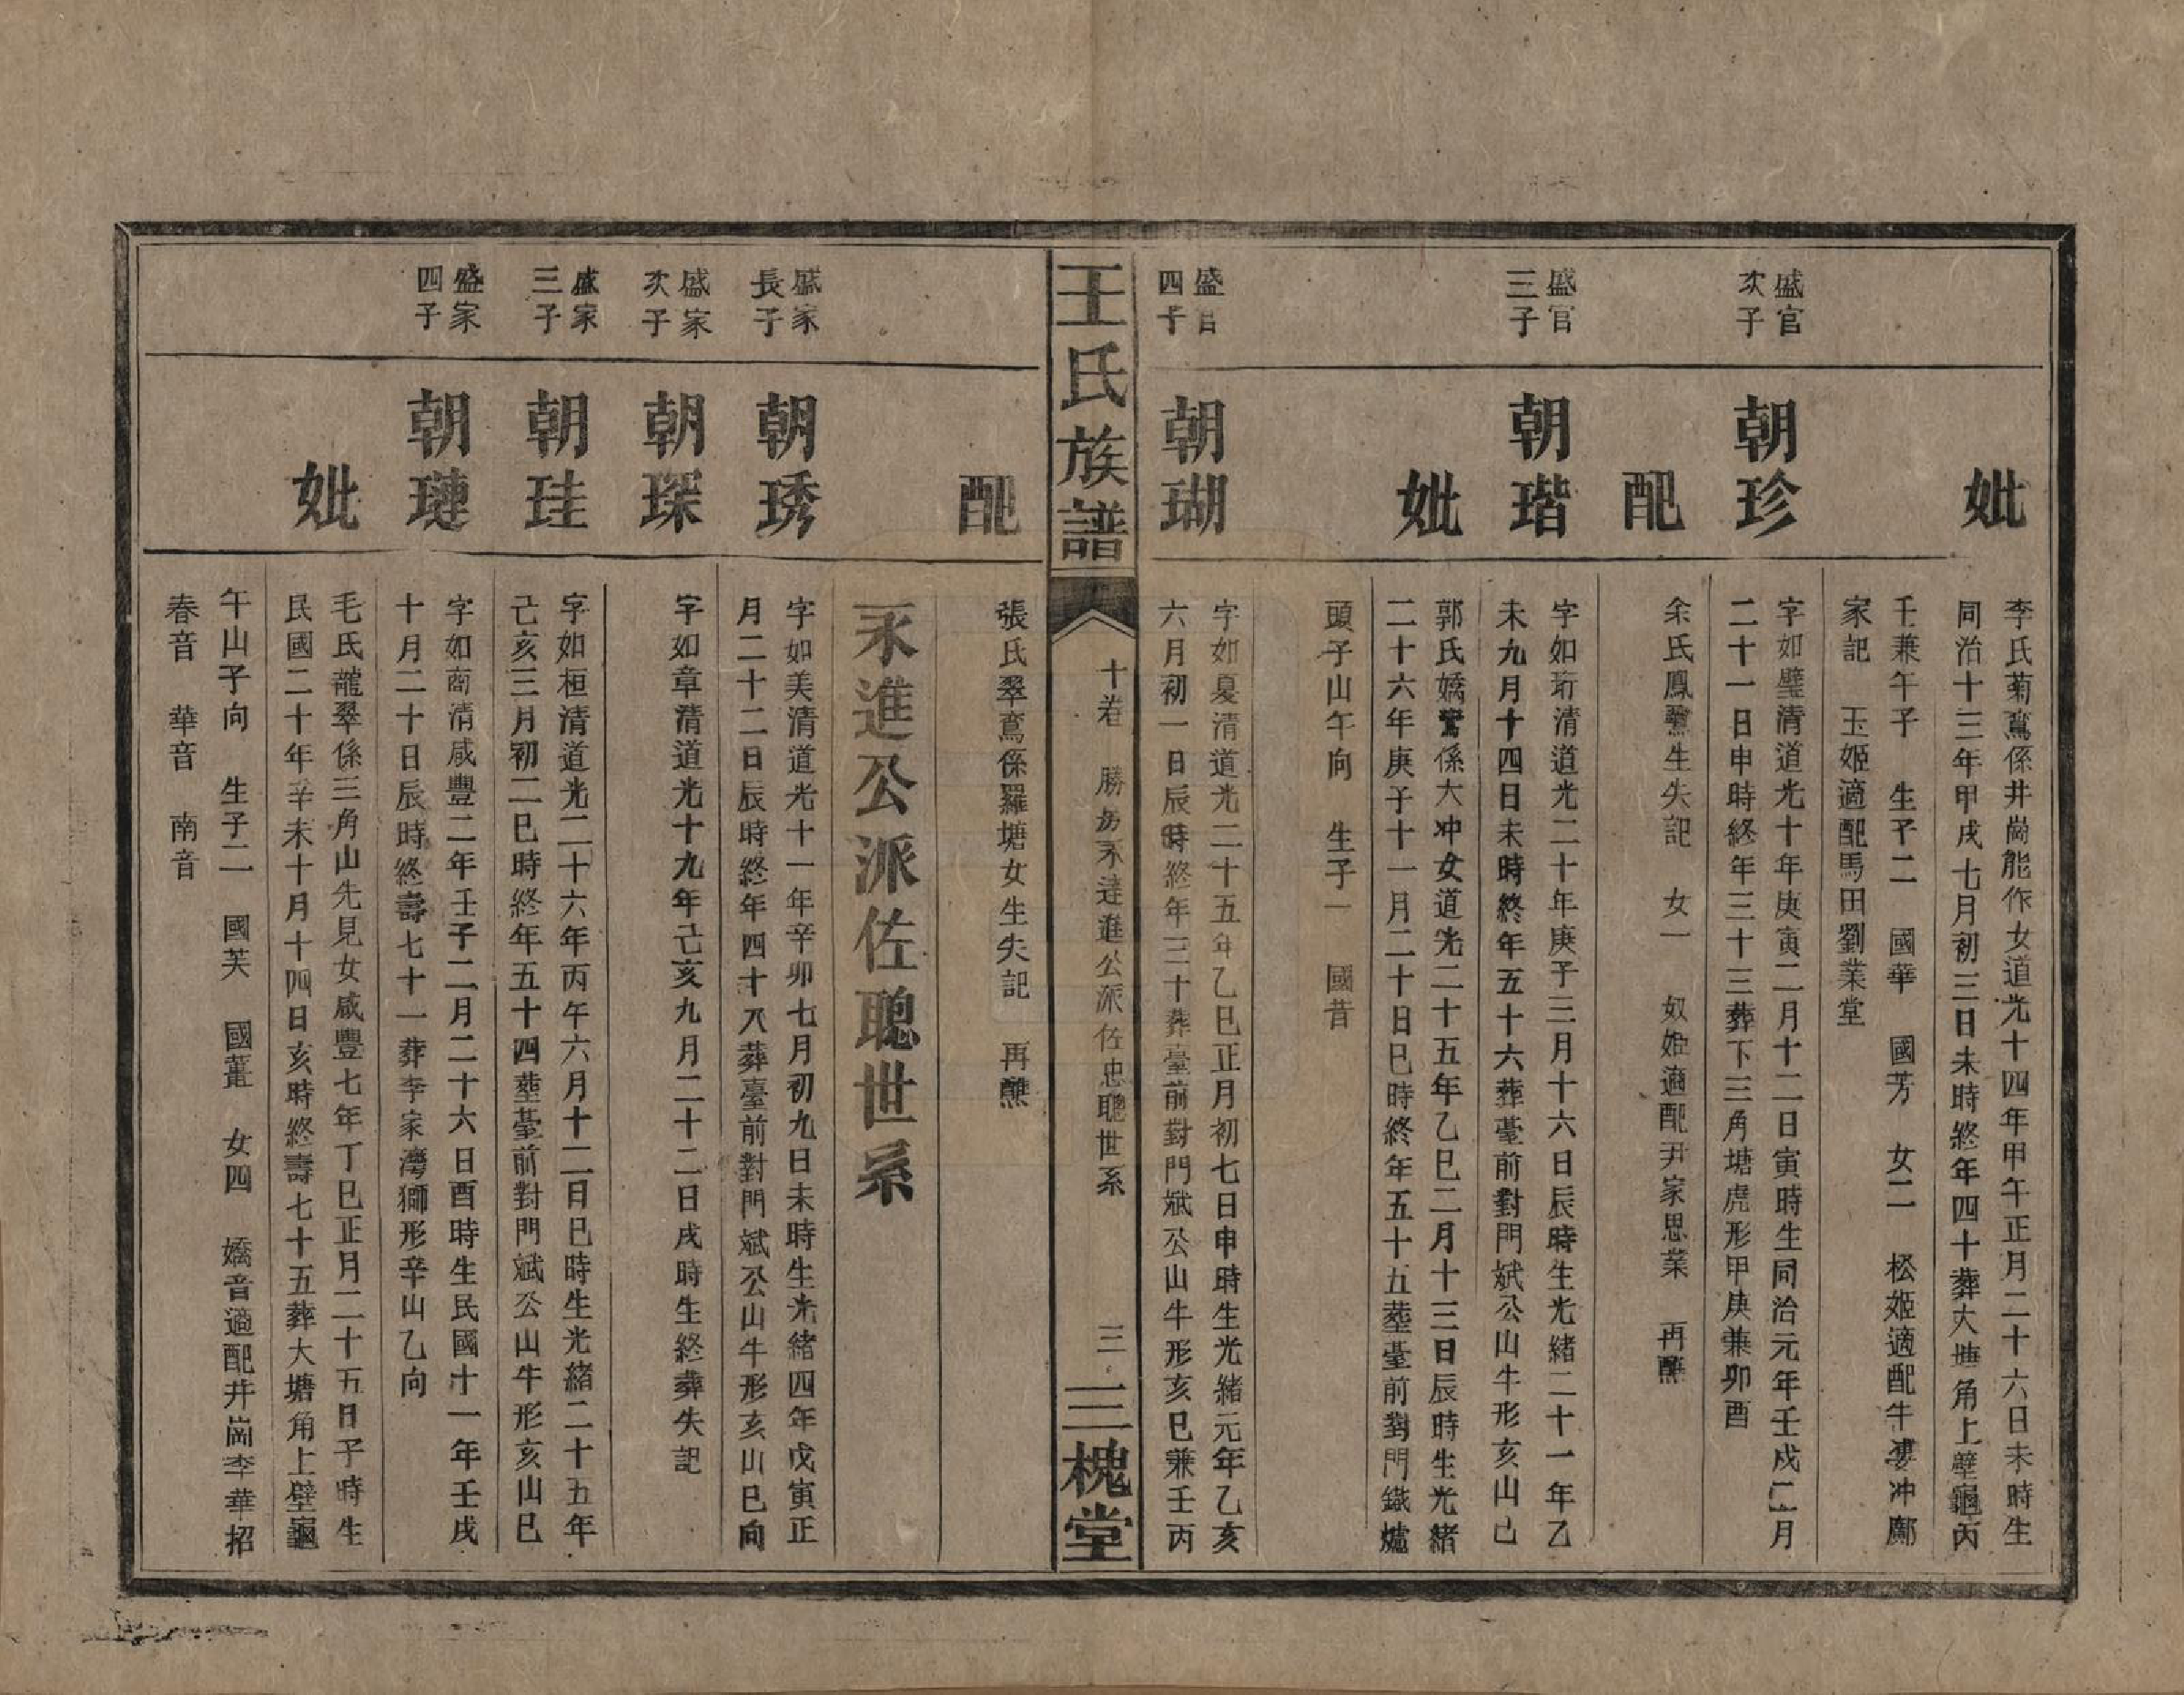 妣
李氏菊鸞係井崗能作女道光十四年甲午正月二十六日未時生
同治十三年甲戌七月初三日未時終年四十葬大塘角上壁龜丙
壬兼午子　生子二　國華　國芳　女二　松姬適配牛婁冲鄺
家記　玉姬適配馬田劉業堂
盛官
次子
朝珍
字如璧清道光十年庚寅二月十二日寅時生同治元年壬戌二月
二十一日申時終年三十三葬下三角塘虎形甲庚兼卯酉
配
余氏鳳鸞生失記　女一　奴姫適配尹家思業　再醮
盛官
三子
朝瑎
字如珩清道光二十年庚子三月十六日辰時生光緒二十一年乙
未九月十四日未時終年五十六葬臺前對門斌公山牛形亥山己
妣
郭氏嬌鸞係大冲女道光二十五年乙巳二月十三日辰時生光緒
二十六年庚子十一月二十日巳時終年五十五塟臺前對門鐵爐
頭子山午向　生子一　國昔
盛官
四子
朝瑚
字如夏清道光二十五年乙巳正月初七日申時生光緒元年乙亥
六月初一日辰時終年三十葬臺前對門斌公山牛形亥巳兼壬丙
王氏族譜
十卷　勝房永達進公派佐忠聰世系
三
三槐堂
配
張氏翠鸞係羅塘女生失記　再醮
永進公派佐聰世系
盛家
長子
朝琇
字如美清道光十一年辛卯七月初九日未時生光緒四年戊寅正
月二十二日辰時終年四十八葬臺前對門斌公山牛形亥山巳向
盛家
次子
朝琛
字如章清道光十九年己亥九月二十二日戌時生終葬失記
盛家
三子
朝珪
字如桓清道光二十六年丙午六月十二日巳時生光緒二十五年
己亥三月初二巳時終年五十四塟臺前對門斌公山牛形亥山巳
盛家
四子
朝璉
字如商清咸豐二年壬子二月二十六日酉時生民國十一年壬戌
十月二十日辰時終壽七十一葬李家灣獅形辛山乙向
妣
毛氏蘢翠係三角山先見女咸豐七年丁巳正月二十五日子時生
民國二十年辛未十月十四日亥時終壽七十五葬大塘角上壁龜
午山子向　生子二　國芙　國藍　女四　嬌音適配井崗李華招
春音　華音　南音